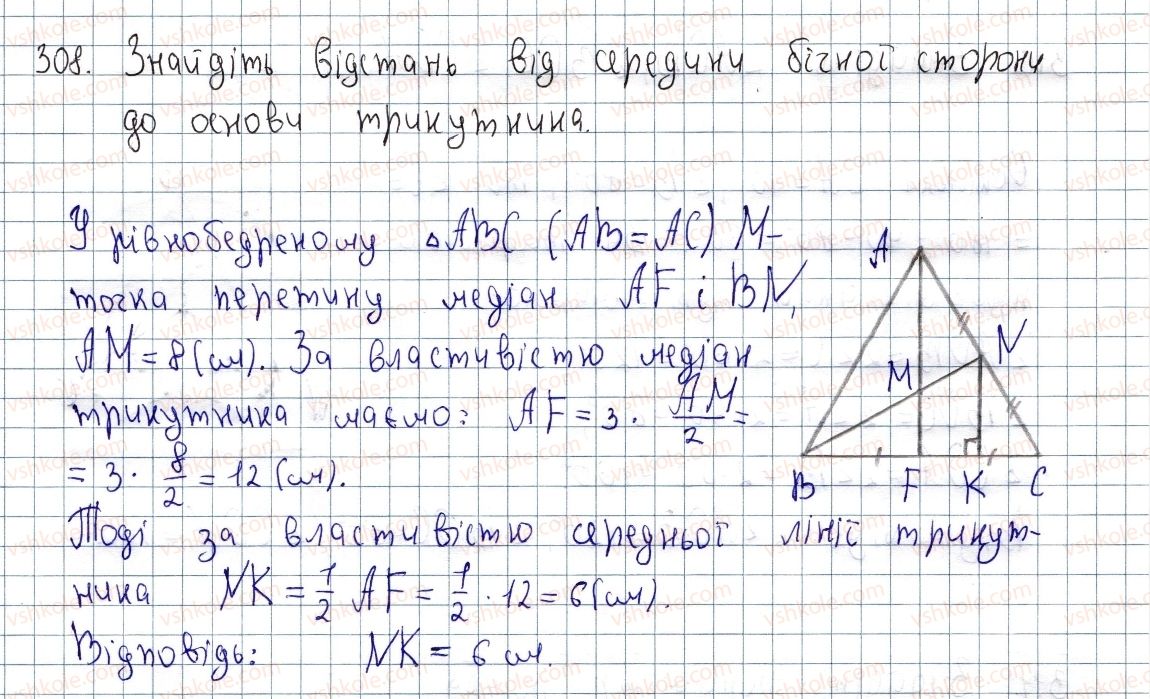 308. Знайдіть відстань від середини бічної сторони
до основи трикутника.
У рівнобедреному △ABC (AB = AC) M-
точка перетину медіан AF і BN,
AM = 8 (см). За властивістю медіан
трикутника маємо: AF = 3 · AM/2 =
= 3 · 8/2 = 12 (см).
Тоді за властивістю середньої лінії трикут-
ника NK = 1/2 AF = 1/2 · 12 = 6 (см).
Відповідь: NK = 6 см.
A
N
M
B F K C